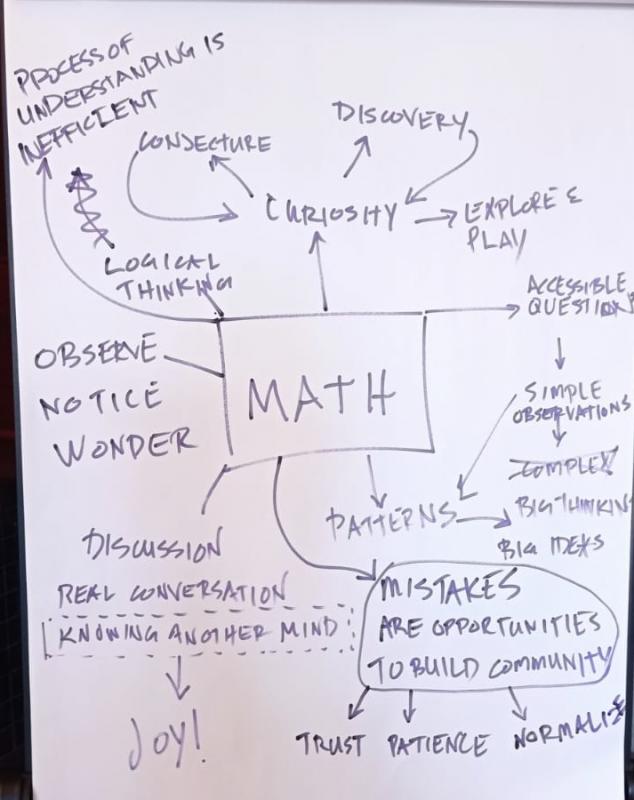 PROCESS OF
UNDERSTANDING IS
INEFFICIENT
CONJECTURE
DISCOVERY
CURIOSITY
EXPLORE &
PLAY
LOGICAL
THINKING
ACCESSIBLE
QUESTION
OBSERVE
NOTICE
WONDER
MATH
SIMPLE
OBSERVATIONS
COMPLEX
PATTERNS
BIG THINKING
BIG IDEAS
DISCUSSION
REAL CONVERSATION
KNOWING ANOTHER MIND
JOY!
MISTAKES
ARE OPPORTUNITIES
TO BUILD COMMUNITY
TRUST PATIENCE NORMALIZE